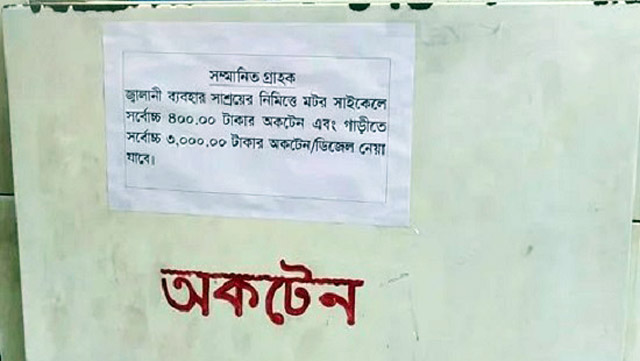 সম্মানিত গ্রাহক
জ্বালানী ব্যবহার সাশ্রয়ের নিমিত্তে মটর সাইকেলে
সর্বোচ্চ ৪০০.০০ টাকার অকটেন এবং গাড়ীতে
সর্বোচ্চ ৩,০০০.০০ টাকার অকটেন/ডিজেল নেয়া
যাবে।
অকটেন